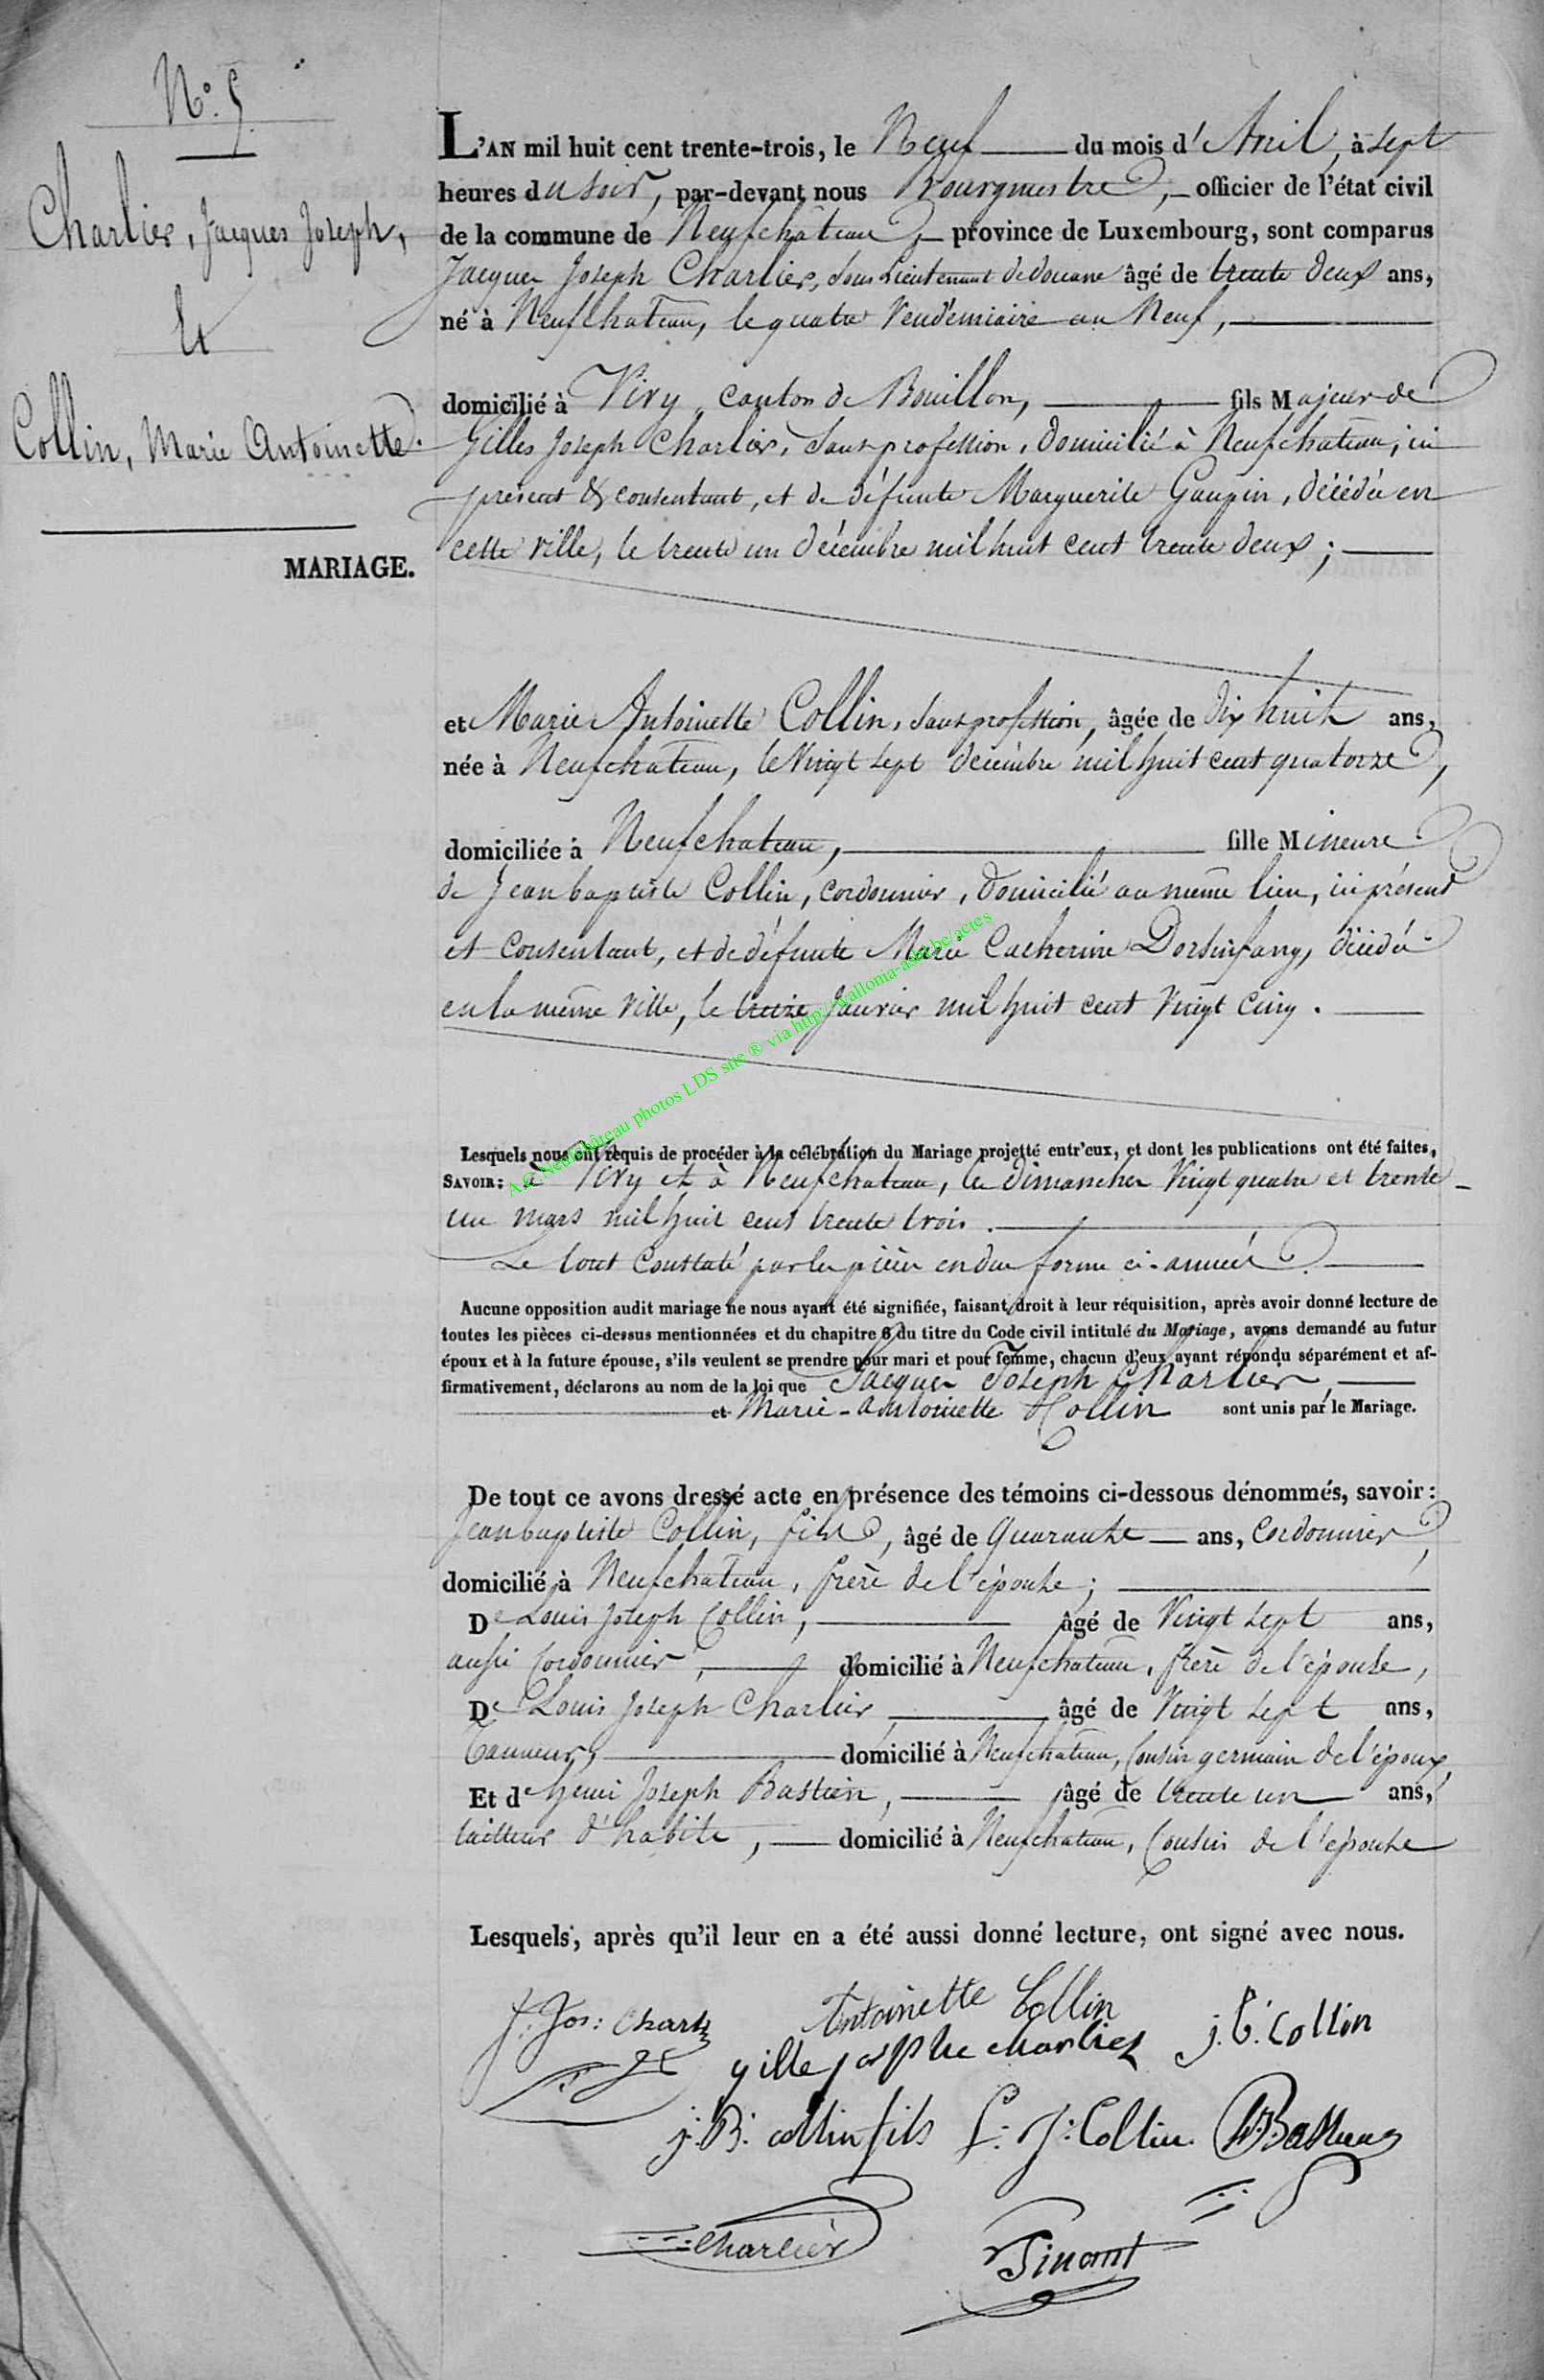 N° 5
Charlier, Jacques Joseph,
Et
Collin, Marie Antoinette.
MARIAGE.
L'AN mil huit cent trente-trois, le Neuf du mois d'Avril, à sept
heures du soir, par-devant nous Bourgmestre, officier de l'état civil
de la commune de Neufchâteau, province de Luxembourg, sont comparus
Jacques Joseph Charlier, Sous Lieutenant de douane âgé de trente deux ans,
né à Neufchateau, le quatre Vendémiaire an Neuf,
domicilié à Vivy, canton de Bouillon, fils Majeur de
Gilles Joseph Charlier, sans profession, domicilié à Neufchateau, ici
présent & consentant, et de défunte Marguerite Gaupin, décédée en
cette ville, le trente un décembre mil huit cent trente deux;
et Marie Antoinette Collin, sans profession, âgée de dix huit ans,
née à Neufchateau, le Vingt sept décembre mil huit cent quatorze,
domiciliée à Neufchateau, fille Mineure
de Jean baptiste Collin, cordonnier, domicilié au même lieu, ici présent
et consentant, et de défunte Marie Catherine décédée
en la même ville, le treize Janvier mil huit cent Vingt Cinq.
A.C Neufchâteau photos LDS site ® via http://wallonia-asbl.be/actes
Lesquels nous ont requis de procéder à la célébration du Mariage projetté entr'eux, et dont les publications ont été faites,
SAVOIR: à Vivy et à Neufchateau, les dimanches Vingt quatre et trente
un mars mil huit cent trente trois.
Le tout constaté par les pièces en due forme ci-annexées
Aucune opposition audit mariage ne nous ayant été signifiée, faisant droit à leur réquisition, après avoir donné lecture de
toutes les pièces ci-dessus mentionnées et du chapitre 6 du titre du Code civil intitulé du Mariage, avons demandé au futur
époux et à la future épouse, s'ils veulent se prendre pour mari et pour femme, chacun d'eux ayant répondu séparément et af-
firmativement, déclarons au nom de la loi que Jacques Joseph Charlier
et Marie-Antoinette Collin sont unis par le Mariage.
De tout ce avons dressé acte en présence des témoins ci-dessous dénommés, savoir:
Jean baptiste Collin, fils, âgé de Quarante ans, Cordonnier,
domicilié à Neufchateau, frère de l'épouse;
De Louis Joseph Collin, âgé de Vingt sept ans,
aussi Cordonnier, domicilié à Neufchateau, frère de l'épouse,
De Louis Joseph Charlier, âgé de Vingt sept ans,
Tanneur, domicilié à Neufchateau, Cousin germain de l'époux,
Et de henri Joseph Bastien, âgé de trente un ans,
tailleur d'habits, domicilié à Neufchateau, Cousin de l'épouse
Lesquels, après qu'il leur en a été aussi donné lecture, ont signé avec nous.
J. Jos: Charlier
Antoinette Collin
j. b. Collin
gille josphe charliez
j. B. collin fils
L. J. Collin
Charlier